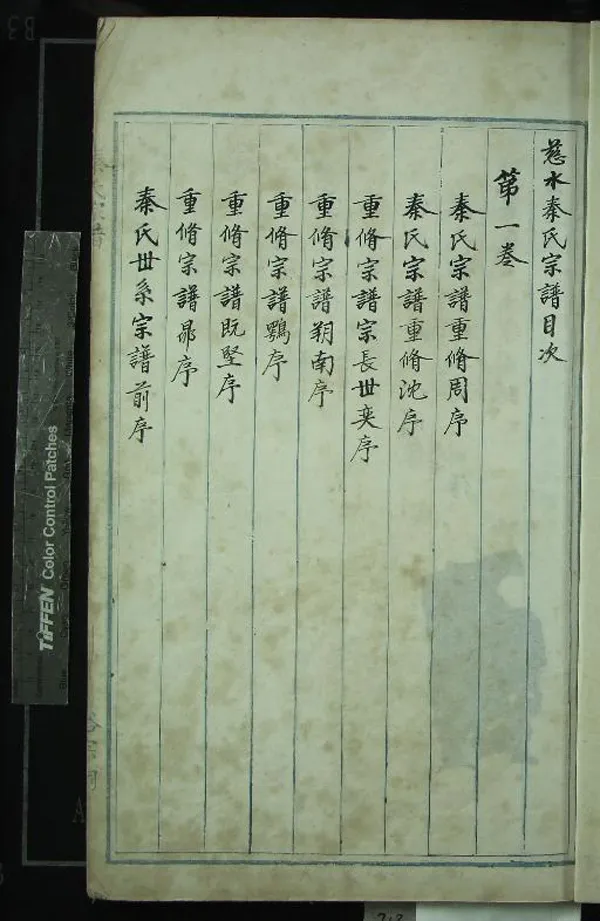 慈水秦氏宗譜目次
第一卷
秦氏宗譜重脩周序
秦氏宗譜重脩沈序
重脩宗譜宗長世奕序
重脩宗譜翔南序
重脩宗譜鶚序
重脩宗譜既堅序
重脩宗譜鼎序
秦氏世系宗譜前序
TIFFEN Color Control Patches
B3